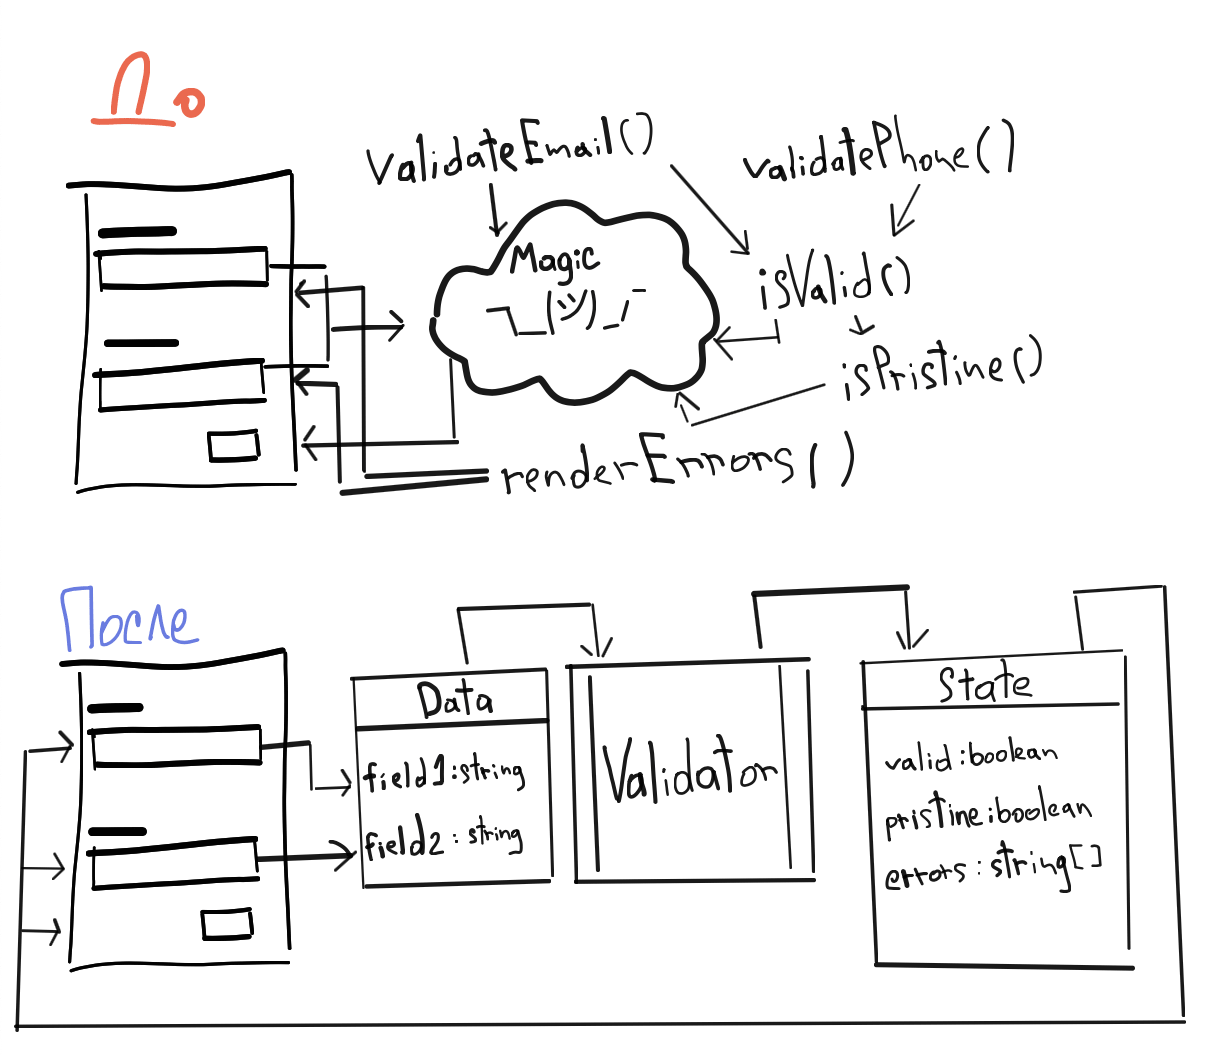 До
validateEmail()
validatePhone()
Magic
¯\_(ツ)_/¯
isValid()
isPristine()
renderErrors()
После
Data
field1:string
field2:string
Validator
State
valid:boolean
pristine:boolean
errors:string[]